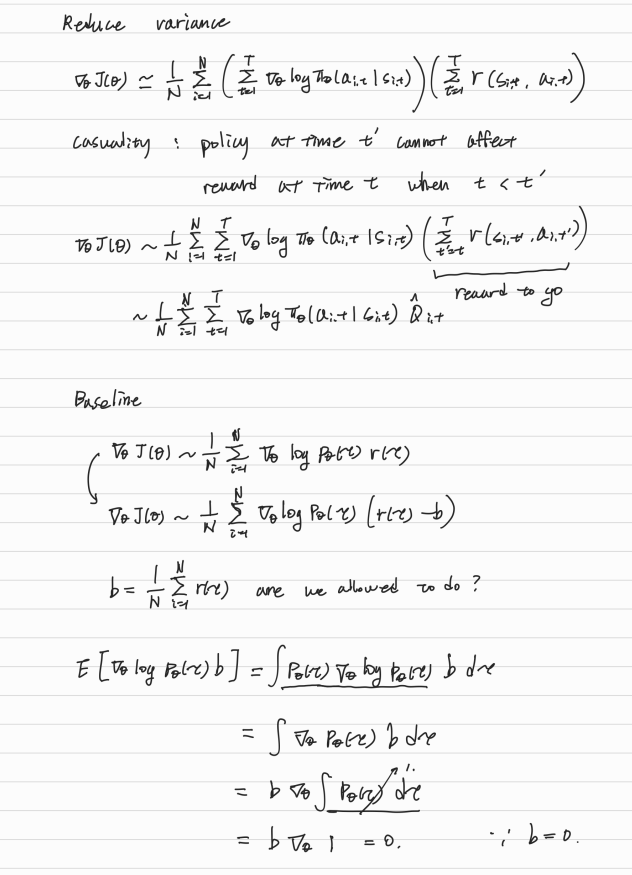 Reduce variance
∇θ J(θ) ≃ 1/N Σ_{i=1}^{N} ( Σ_{t=1}^{T} ∇θ log πθ(a_{i,t} | s_{i,t}) ) ( Σ_{t=1}^{T} r(s_{i,t}, a_{i,t}) )
casuality : policy at time t' cannot affect
reward at time t when t < t'
∇θ J(θ) ~ 1/N Σ_{i=1}^{N} Σ_{t=1}^{T} ∇θ log πθ(a_{i,t} | s_{i,t}) ( Σ_{t'=t}^{T} r(s_{i,t'}, a_{i,t'}) )
reward to go
~ 1/N Σ_{i=1}^{N} Σ_{t=1}^{T} ∇θ log πθ(a_{i,t} | s_{i,t}) Q̂_{i,t}
Baseline
∇θ J(θ) ~ 1/N Σ_{i=1}^{N} ∇θ log Pθ(τ) r(τ)
∇θ J(θ) ~ 1/N Σ_{i=1}^{N} ∇θ log Pθ(τ) (r(τ) - b)
b = 1/N Σ_{i=1}^{N} r(τ) are we allowed to do ?
E [∇θ log Pθ(τ) b] = ∫ Pθ(τ) ∇θ log Pθ(τ) b dτ
= ∫ ∇θ Pθ(τ) b dτ
= b ∇θ ∫ Pθ(τ) dτ 1.
= b ∇θ 1 = 0. ∵ b = 0.